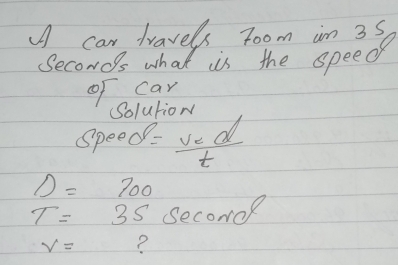 A car travels 700m in 35
Seconds what is the speed
of car
Solution
Speed = v = d
t
D = 700
T = 35 Second
v = ?